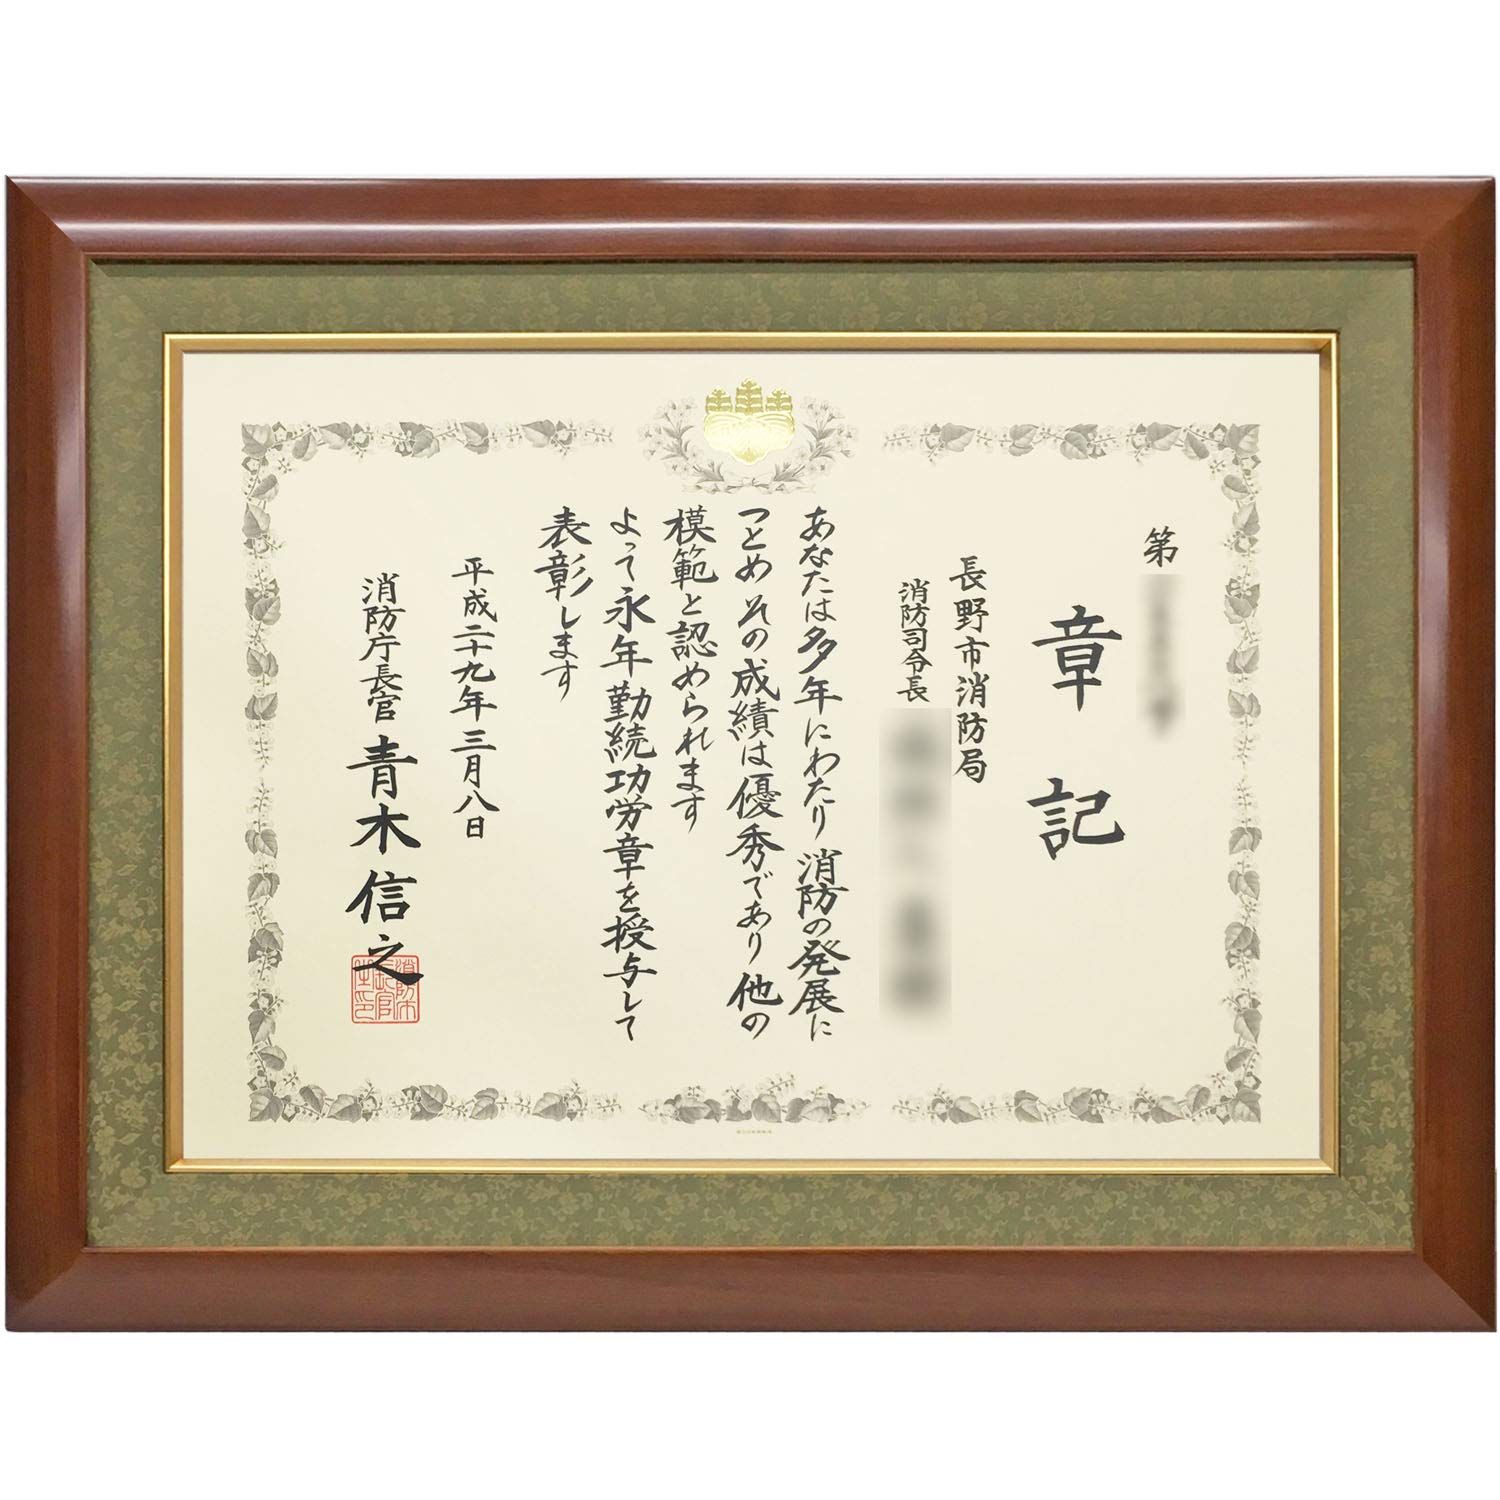 第
章記
長野市消防局
消防司令長
あなたは多年にわたり消防の発展に
つとめその成績は優秀であり他の
模範と認められます
よって永年勤続功労章を授与して
表彰します
平成二十九年三月八日
消防庁長官 青木信之
消防庁長官之印